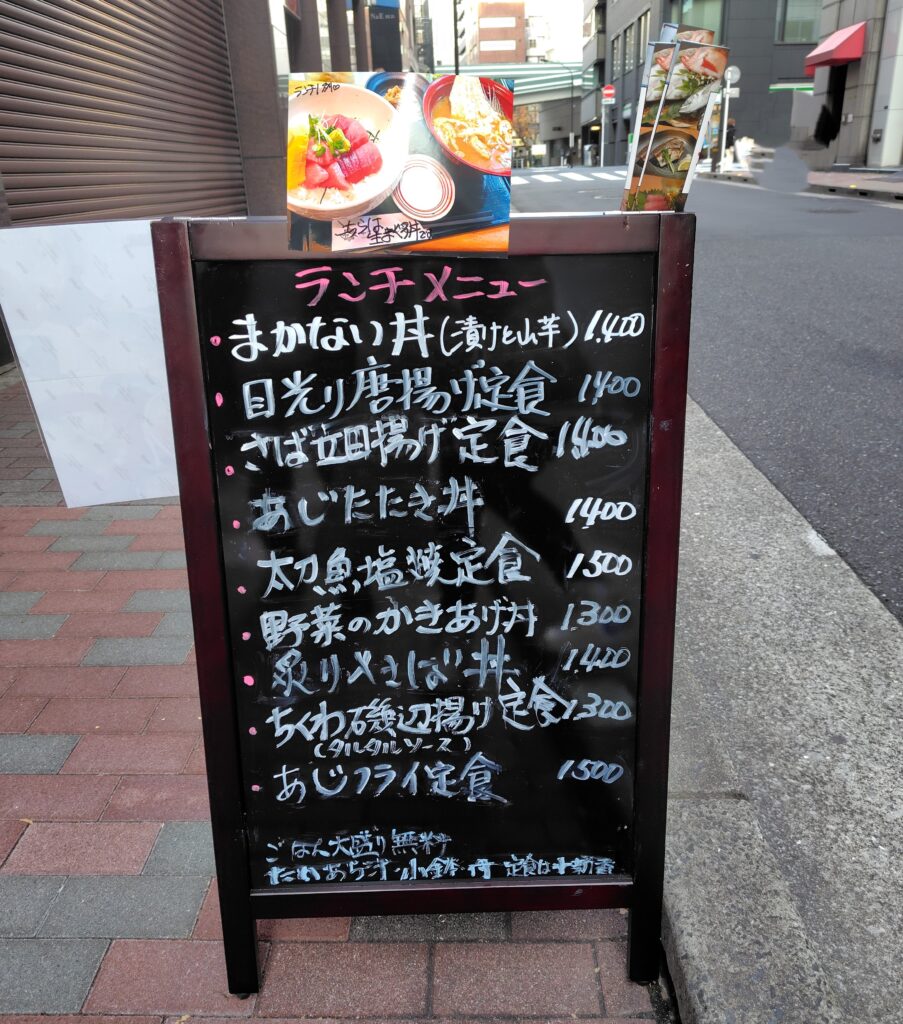 ランチメニュー
まかない丼(漬けと山芋) 1.400
目光り唐揚げ定食 1400
さば立田揚げ定食 1.400
あじたたき丼 1400
太刀魚塩焼定食 1.500
野菜のかきあげ丼 1.300
炙り〆さば丼 1.400
ちくわ磯辺揚げ定食 1.300
(タルタルソース)
あじフライ定食 1500
ごはん大盛り無料
あら汁・小鉢・付 定食は